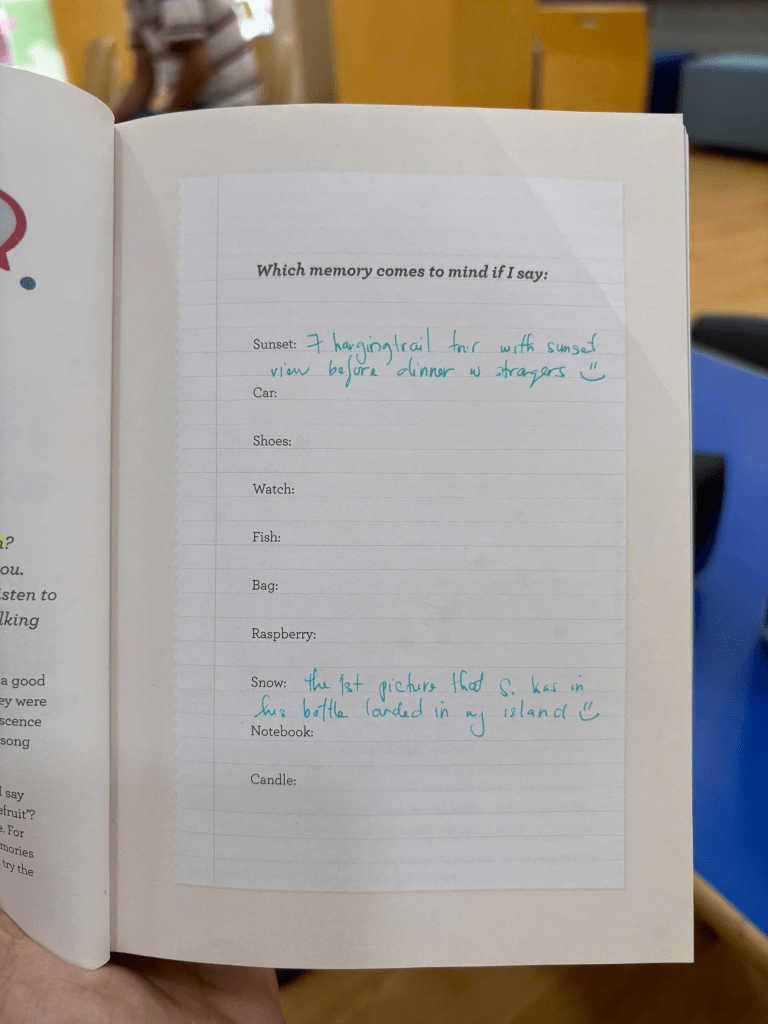 Which memory comes to mind if I say:
Sunset: 7 hangingtrail tour with sunset
view before dinner w strangers
Car:
Shoes:
Watch:
Fish:
Bag:
Raspberry:
Snow: the 1st picture that S. has in
his bottle landed in my island
Notebook:
Candle:
?
ou.
isten to
lking
a good
ey were
scence
song
I say
efruit'?
e. For
mories
try the